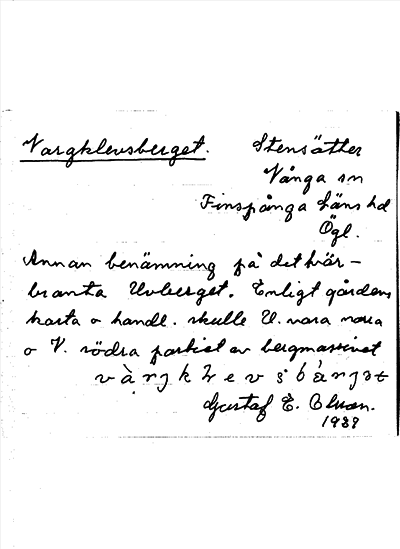 Vargklevsberget. Stensätter
Vånga sn
Finspånga läns hd
Ögl.
Annan benämning på det tvär-
branta Uvberget. Enligt gårdens
karta o handl. skulle U. vara norra
o V. södra partiet av bergmassivet
Gustaf E.
1939